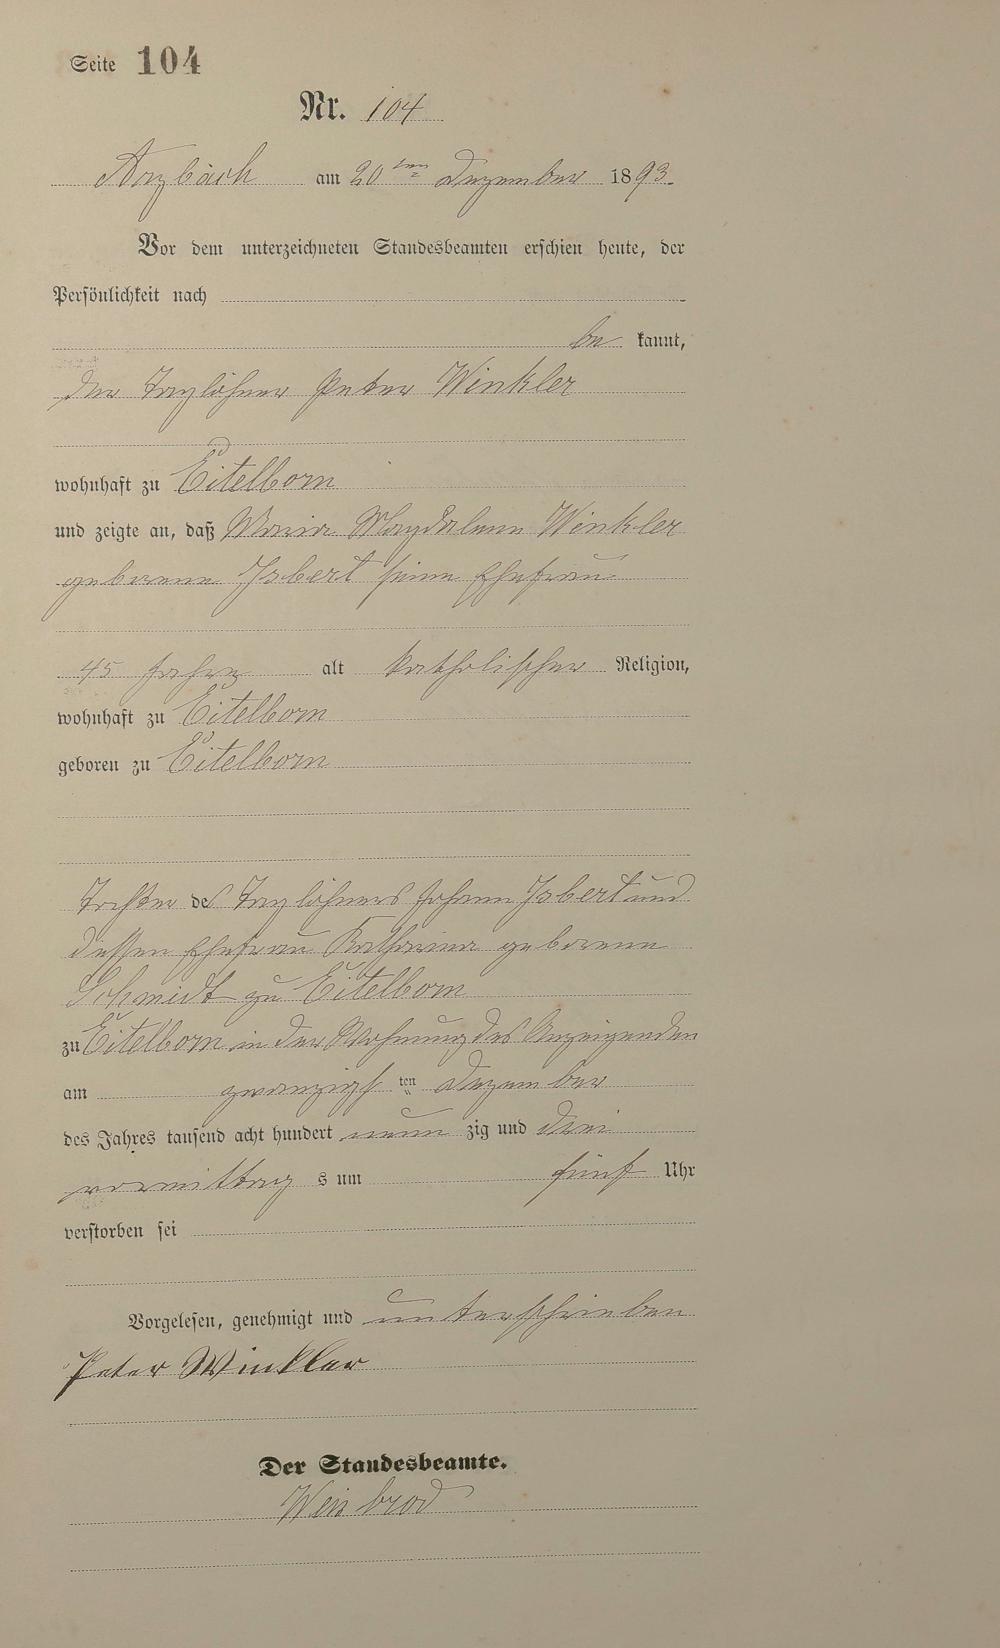 Seite 104
Nr. 104
Arzbach am 20ten Dezember 1893.
Vor dem unterzeichneten Standesbeamten erschien heute, der
Persönlichkeit nach
be kannt,
der Taglöhner Peter Winkler
wohnhaft zu Eitelborn
und zeigte an, daß Maria Magdalena Winkler
geborene Isbert seine Ehefrau
45 Jahre alt katholischer Religion,
wohnhaft zu Eitelborn
geboren zu Eitelborn
Tochter des Taglöhners Johann Isbert und
dessen Ehefrau Katharina geborene
Schmidt zu Eitelborn
zu Eitelborn in der Wohnung des Anzeigenden
am zwanzigsten Dezember
des Jahres tausend acht hundert neun zig und drei
vormittag s um fünf Uhr
verstorben sei
Vorgelesen, genehmigt und unterschrieben
Peter Winkler
Der Standesbeamte.
Weisbrod